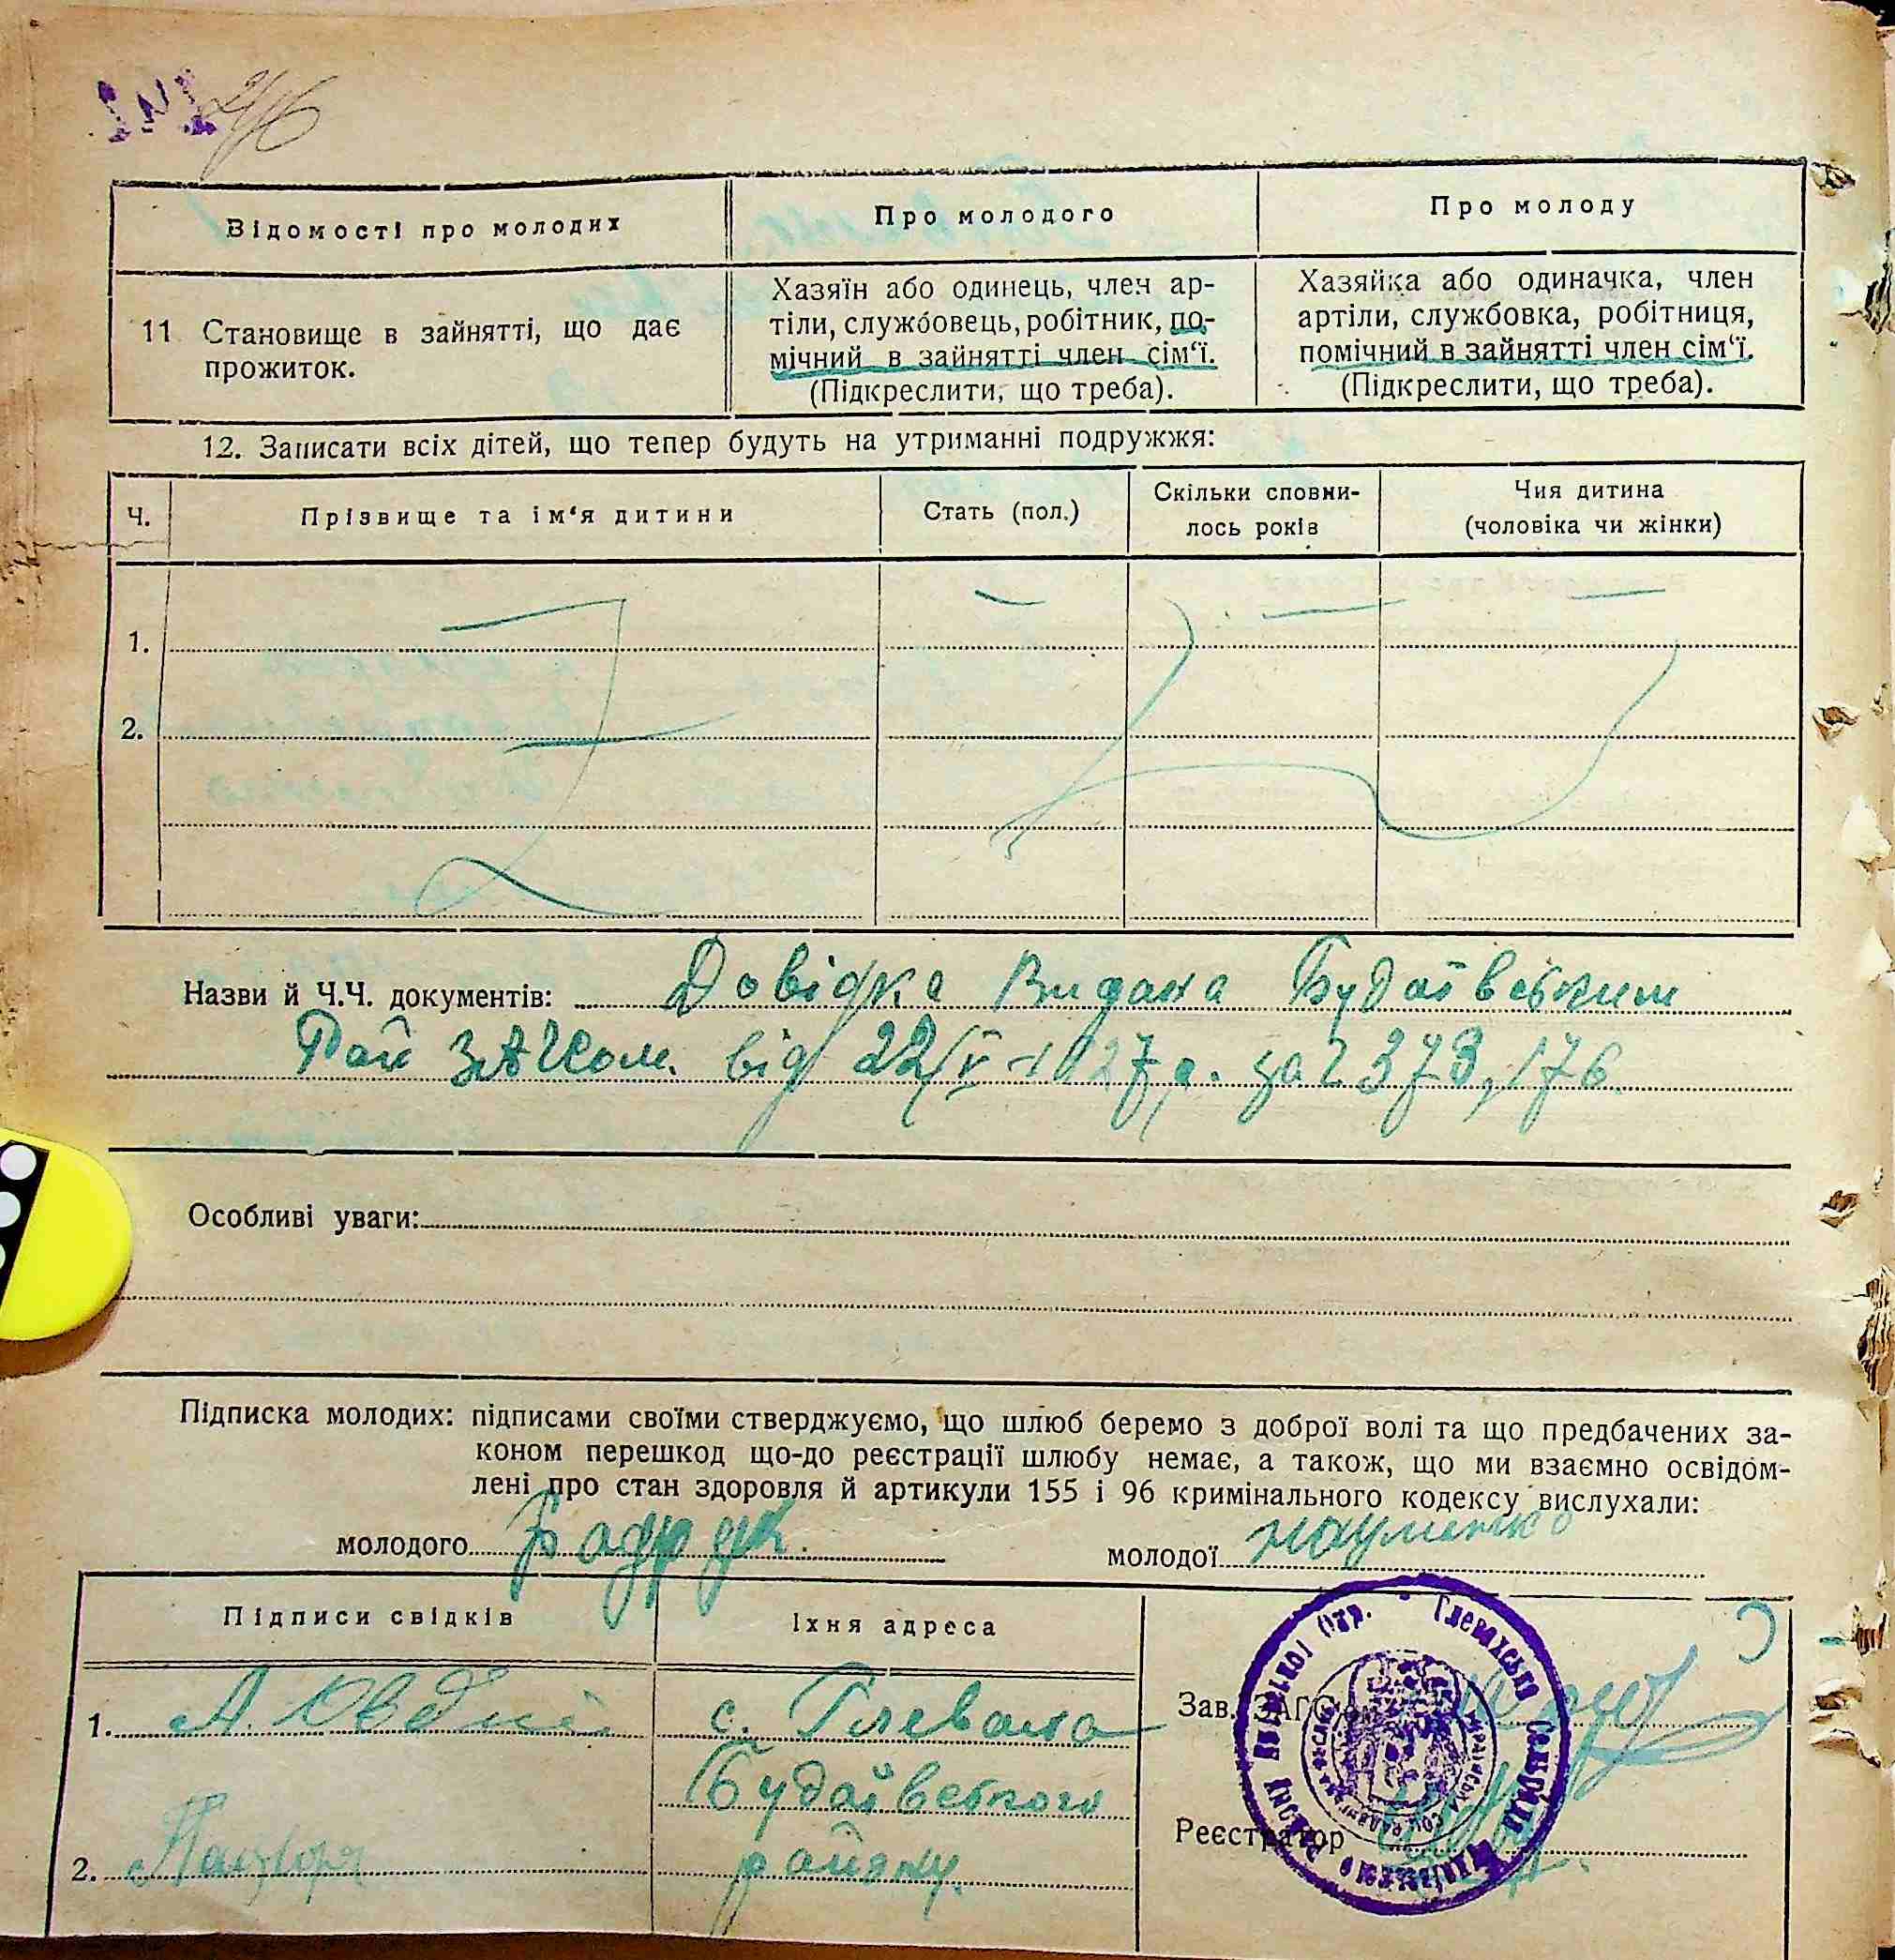 246
Відомості про молодих
Про молодого
Про молоду
11 Становище в зайнятті, що дає
прожиток.
Хазяїн або одинець, член ар-
тіли, службовець, робітник, по-
мічний в зайнятті член сім‘ї.
(Підкреслити, що треба).
Хазяйка або одиначка, член
артіли, службовка, робітниця,
помічний в зайнятті член сім‘ї.
(Підкреслити, що треба).
12. Записати всіх дітей, що тепер будуть на утриманні подружжя:
Ч.
Прізвище та ім‘я дитини
Стать (пол.)
Скільки сповни-
лось років
Чия дитина
(чоловіка чи жінки)
1.
2.
Назви й Ч.Ч. документів: Довідка Видана Будаївським
Рай ЗАГСом. від 22/V-1927р. за 2373, 176
Особливі уваги:
Підписка молодих: підписами своїми стверджуємо, що шлюб беремо з доброї волі та що предбачених за-
коном перешкод що-до реєстрації шлюбу немає, а також, що ми взаємно освідом-
лені про стан здоровля й артикули 155 і 96 кримінального кодексу вислухали:
молодого
молодої Науменко
Підписи свідків
Їхня адреса
1. А. Овдій
с. Глеваха
Будаївського
2.
району.
Зав. ЗАГС
Реєстратор
Глевахська Сельрада Будаївського Району Київської Окр.